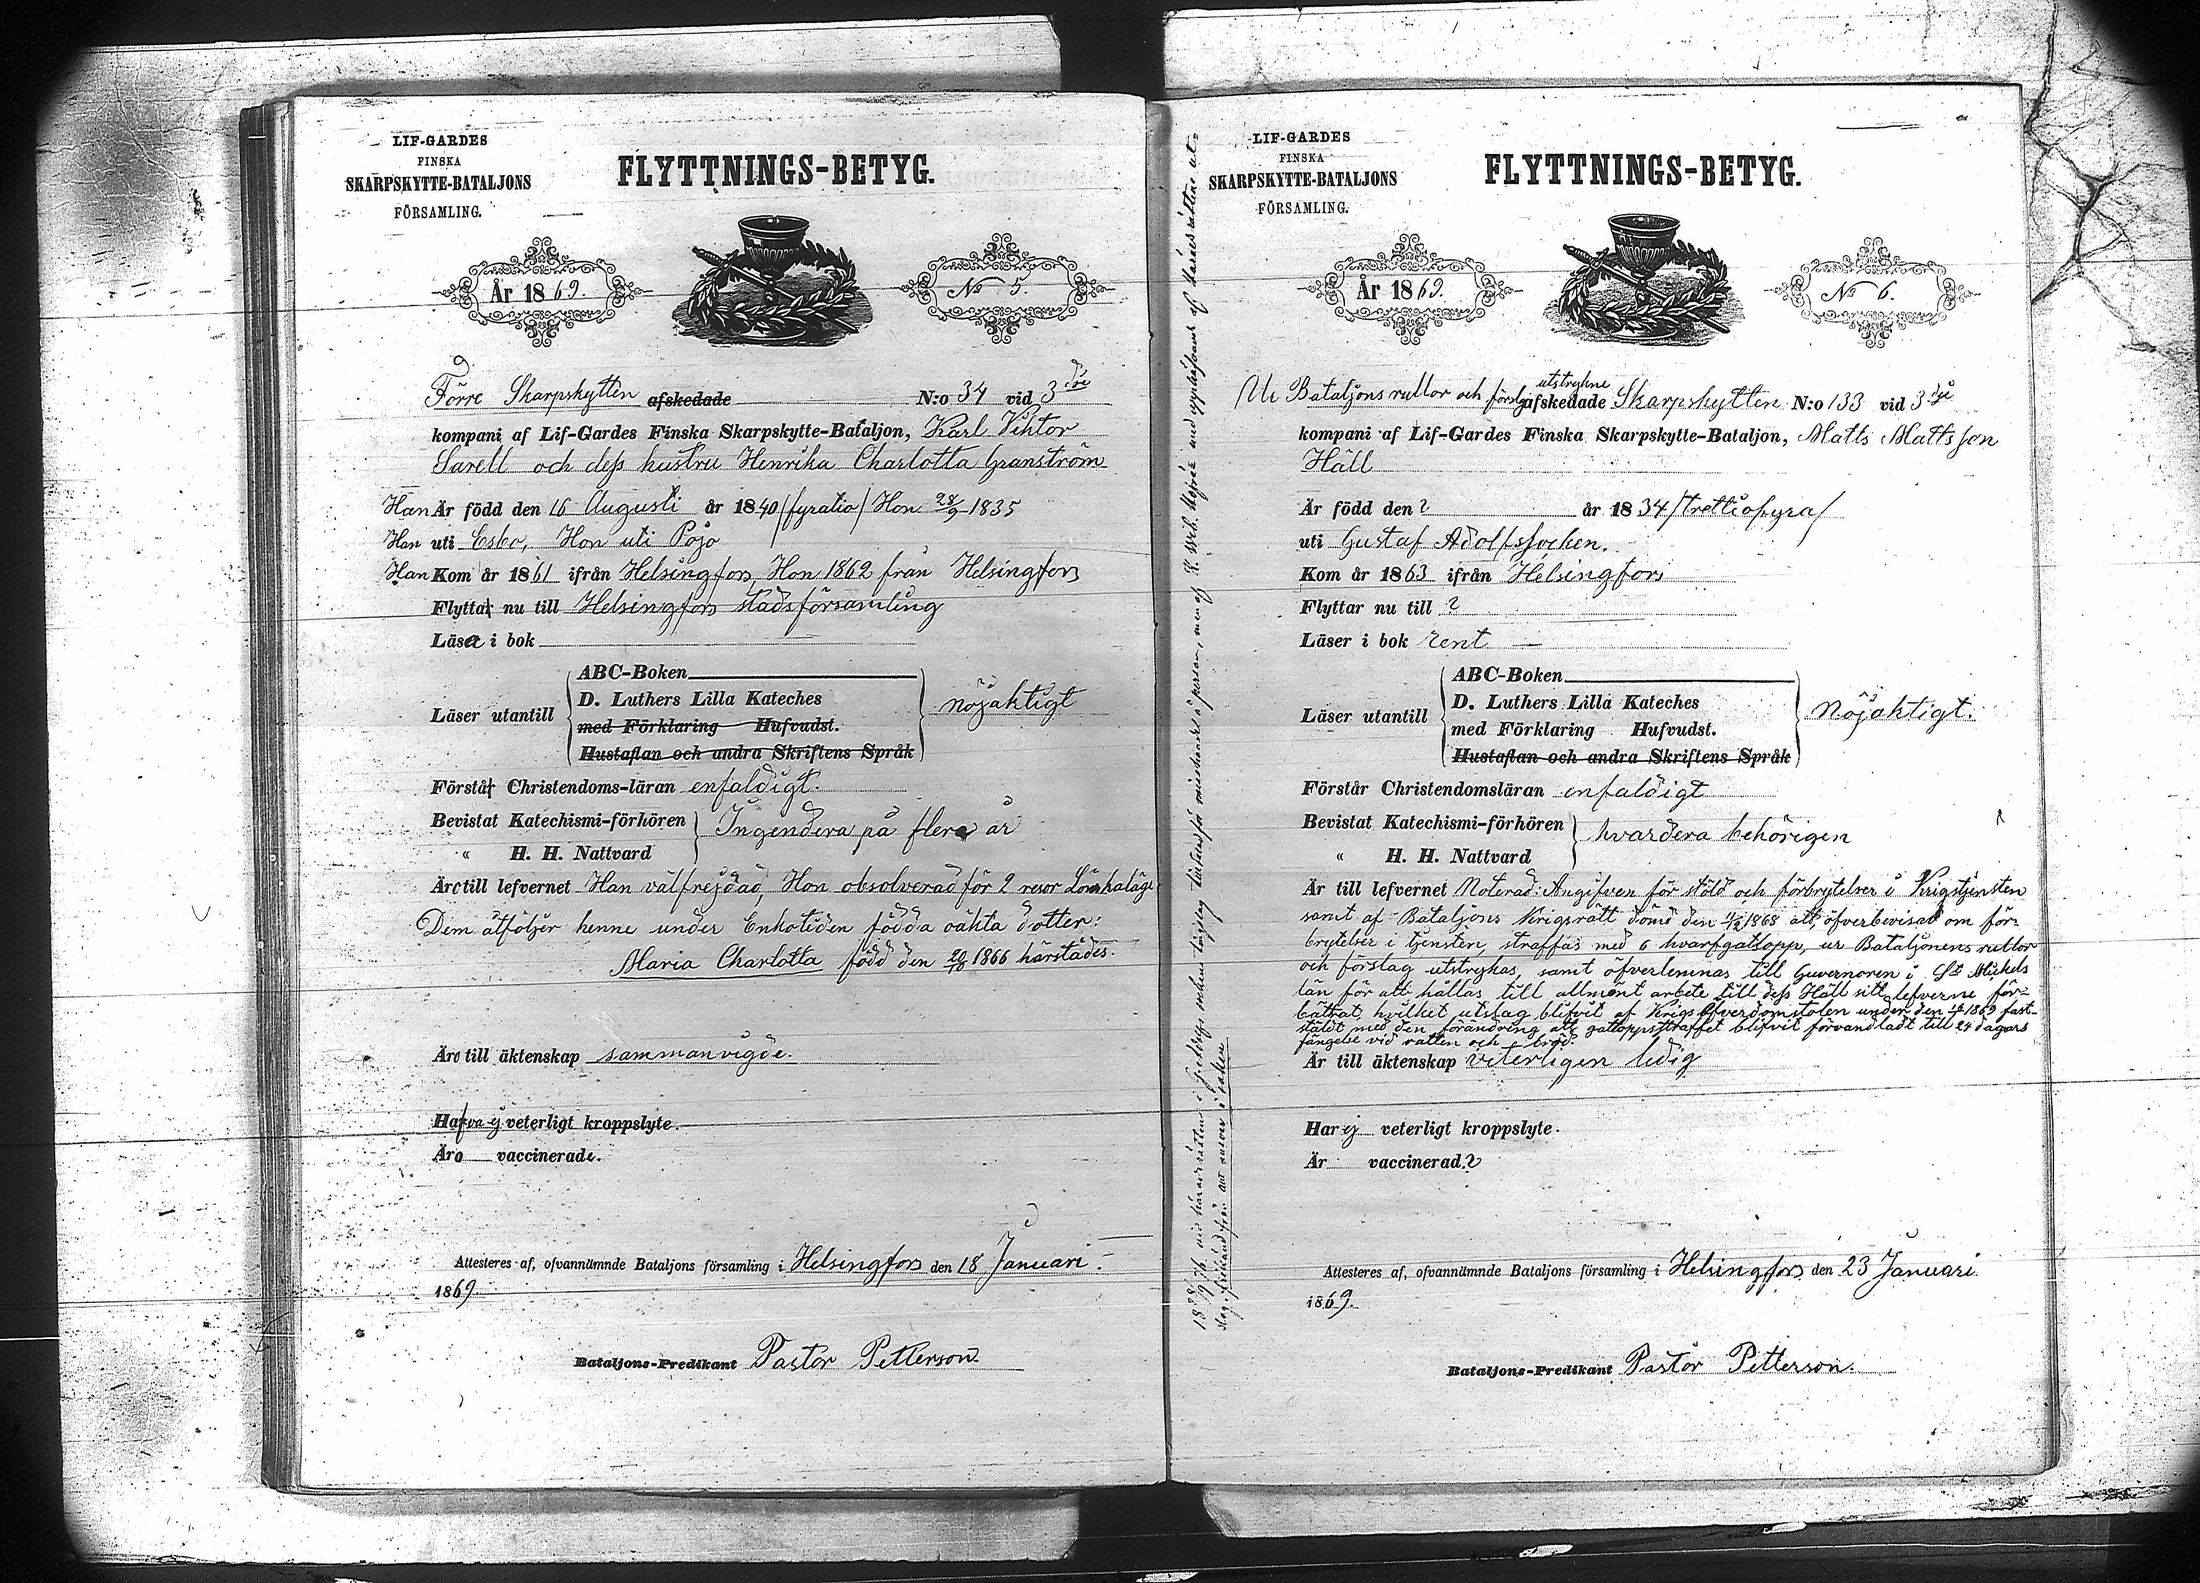 LIF-GARDES
FINSKA
SKARPSKYTTE-BATALJONS
FÖRSAMLING.
FLYTTNINGS-BETYG.
År 1869.
No 5.
Förre Skarpskytten afskedade N:o 34 vid 3dje
kompani af Lif-Gardes Finska Skarpskytte-Bataljon, Karl Viktor
Sarell och dess hustru Henrika Charlotta Granström
Han Är född den 16 Augusti år 1840 /fyratio/ Hon 28/9 1835
Han uti Esbo, Hon uti Pojo
Han Kom år 1861 ifrån Helsingfors, Hon 1862 från Helsingfors
Flytta nu till Helsingfors stadsförsamling
Läsa i bok
Läser utantill
ABC-Boken
D. Luthers Lilla Kateches
med Förklaring Hufvudst.
Hustaflan och andra Skriftens Språk
nöjaktigt
Förstå Christendoms-läran enfaldigt.
Bevistat Katechismi-förhören
" H. H. Nattvard
Ingendera på flera år
Äro till lefvernet Han välfrejdad, Hon absolverad för 2 resor Lönskaläge
Dem åtföljer henne under Enkotiden födda oäkta dotter:
Maria Charlotta född den 20/10 1866 härstädes.
Äro till äktenskap sammanvigde.
Hafva ej veterligt kroppslyte.
Äro vaccinerade.
Attesteres af, ofvannämnde Bataljons församling i Helsingfors den 18 Januari
1869.
Bataljons-Predikant Pastor Petterson.
LIF-GARDES
FINSKA
SKARPSKYTTE-BATALJONS
FÖRSAMLING.
FLYTTNINGS-BETYG.
År 1869.
No 6.
Ur Bataljons rullor och förslag utstrykne afskedade Skarpskytten N:o 133 vid 3dje
kompani af Lif-Gardes Finska Skarpskytte-Bataljon, Matts Mattsson
Häll
Är född den ? år 1834 /trettiofyra/
uti Gustaf Adolfs socken.
Kom år 1863 ifrån Helsingfors
Flyttar nu till ?
Läser i bok rent
Läser utantill
ABC-Boken
D. Luthers Lilla Kateches
med Förklaring Hufvudst.
Hustaflan och andra Skriftens Språk
Nöjaktigt.
Förstår Christendomsläran enfaldigt
Bevistat Katechismi-förhören
" H. H. Nattvard
hvardera behörigen
Är till lefvernet Noterad: Angifven för stöld och förbrytelser i Krigstjensten
samt af Bataljons Krigsrätt dömd den 1868 att, öfverbevisad om för-
brytelser i tjensten, straffas med 6 hvarf gatlopp, ur Bataljonens rullor
och förslag utstrykas, samt öfverlemnas till Guvernören i St Michels
län för att hållas till allmänt arbete till dess Häll sitt lefverne för-
bättrat, hvilket utslag blifvit af Krigs Öfverdomstolen under den 1869 fast-
stäldt med den förändring att gatloppstraffet blifvit förvandladt till 24 dagars
fängelse vid vatten och bröd.
Är till äktenskap veterligen ledig
Har ej veterligt kroppslyte.
Är vaccinerad ?
Attesteres af, ofvannämnde Bataljons församling i Helsingfors den 23 Januari
1869.
Bataljons-Predikant Pastor Petterson.